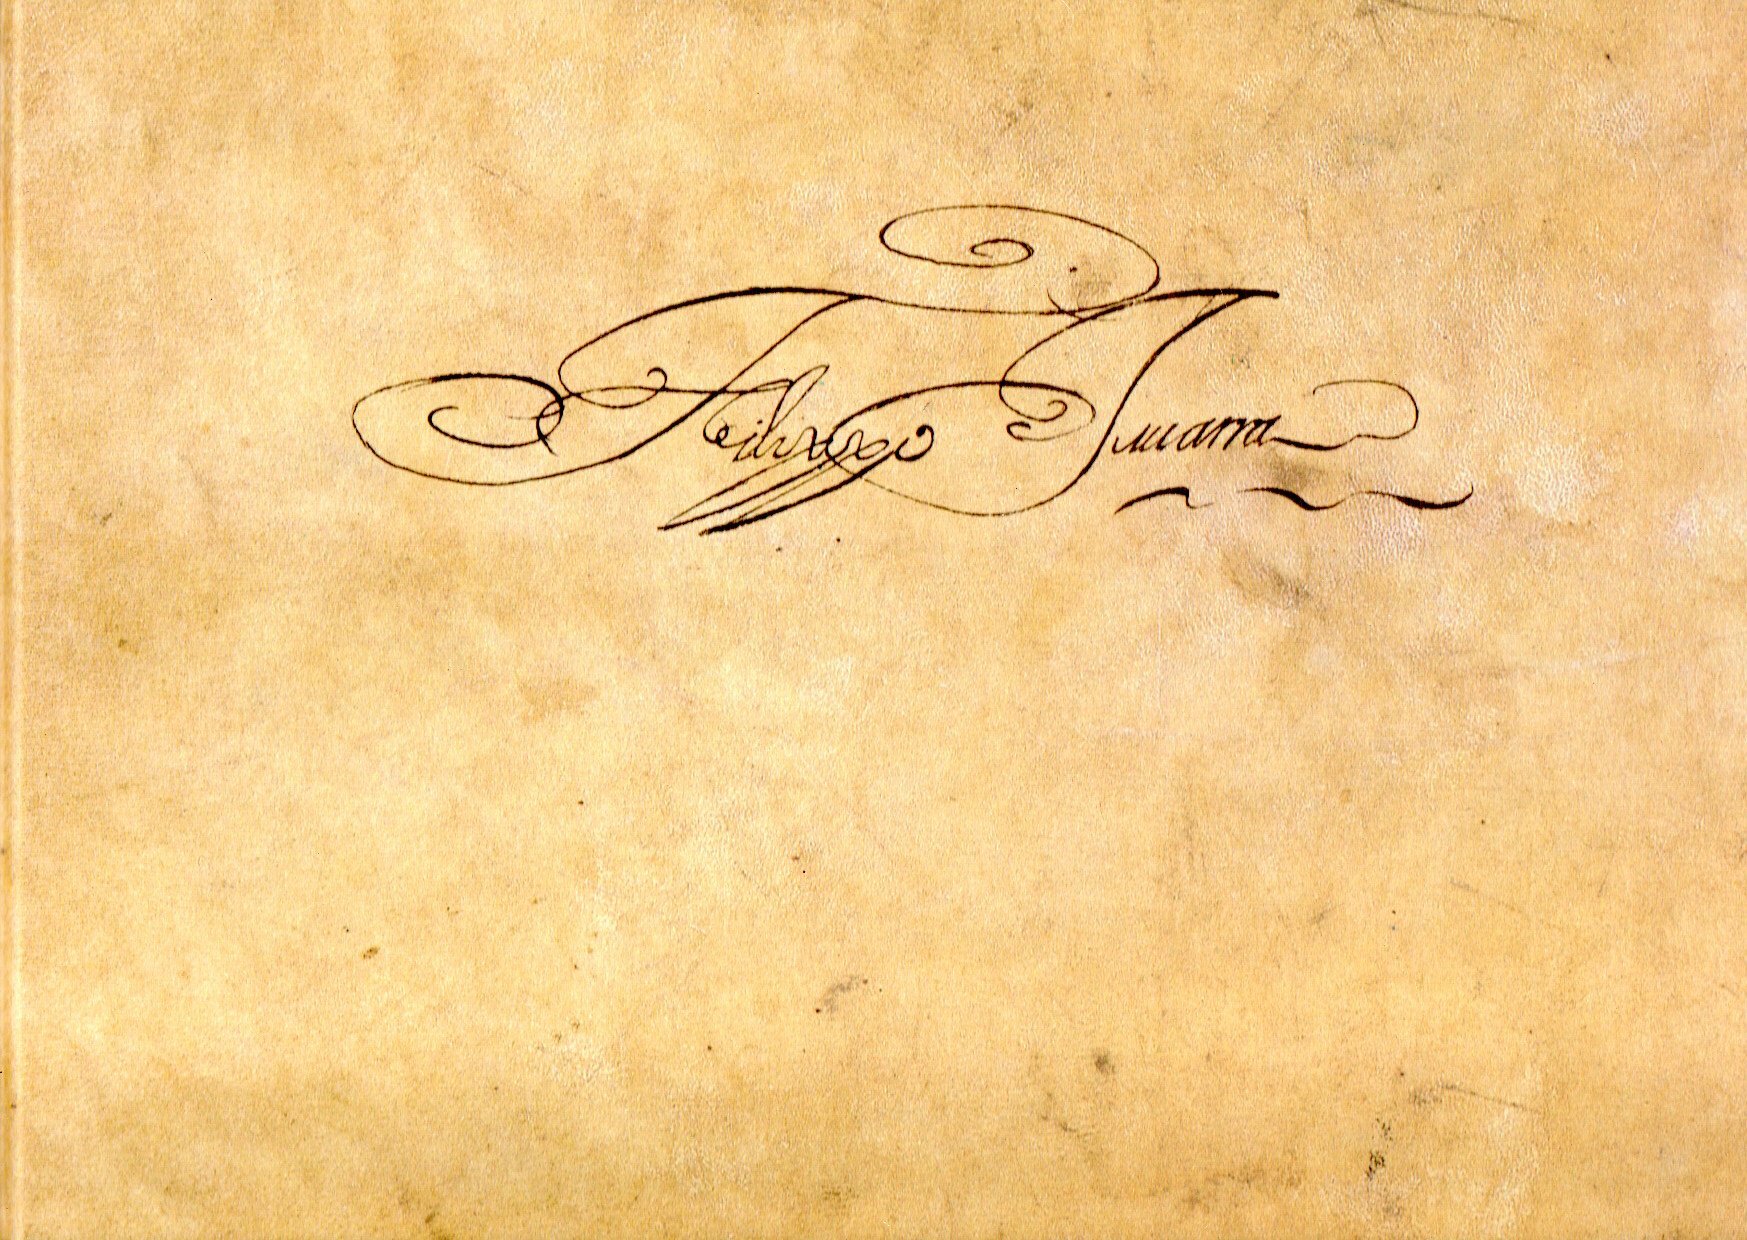 Filippo Juuarra